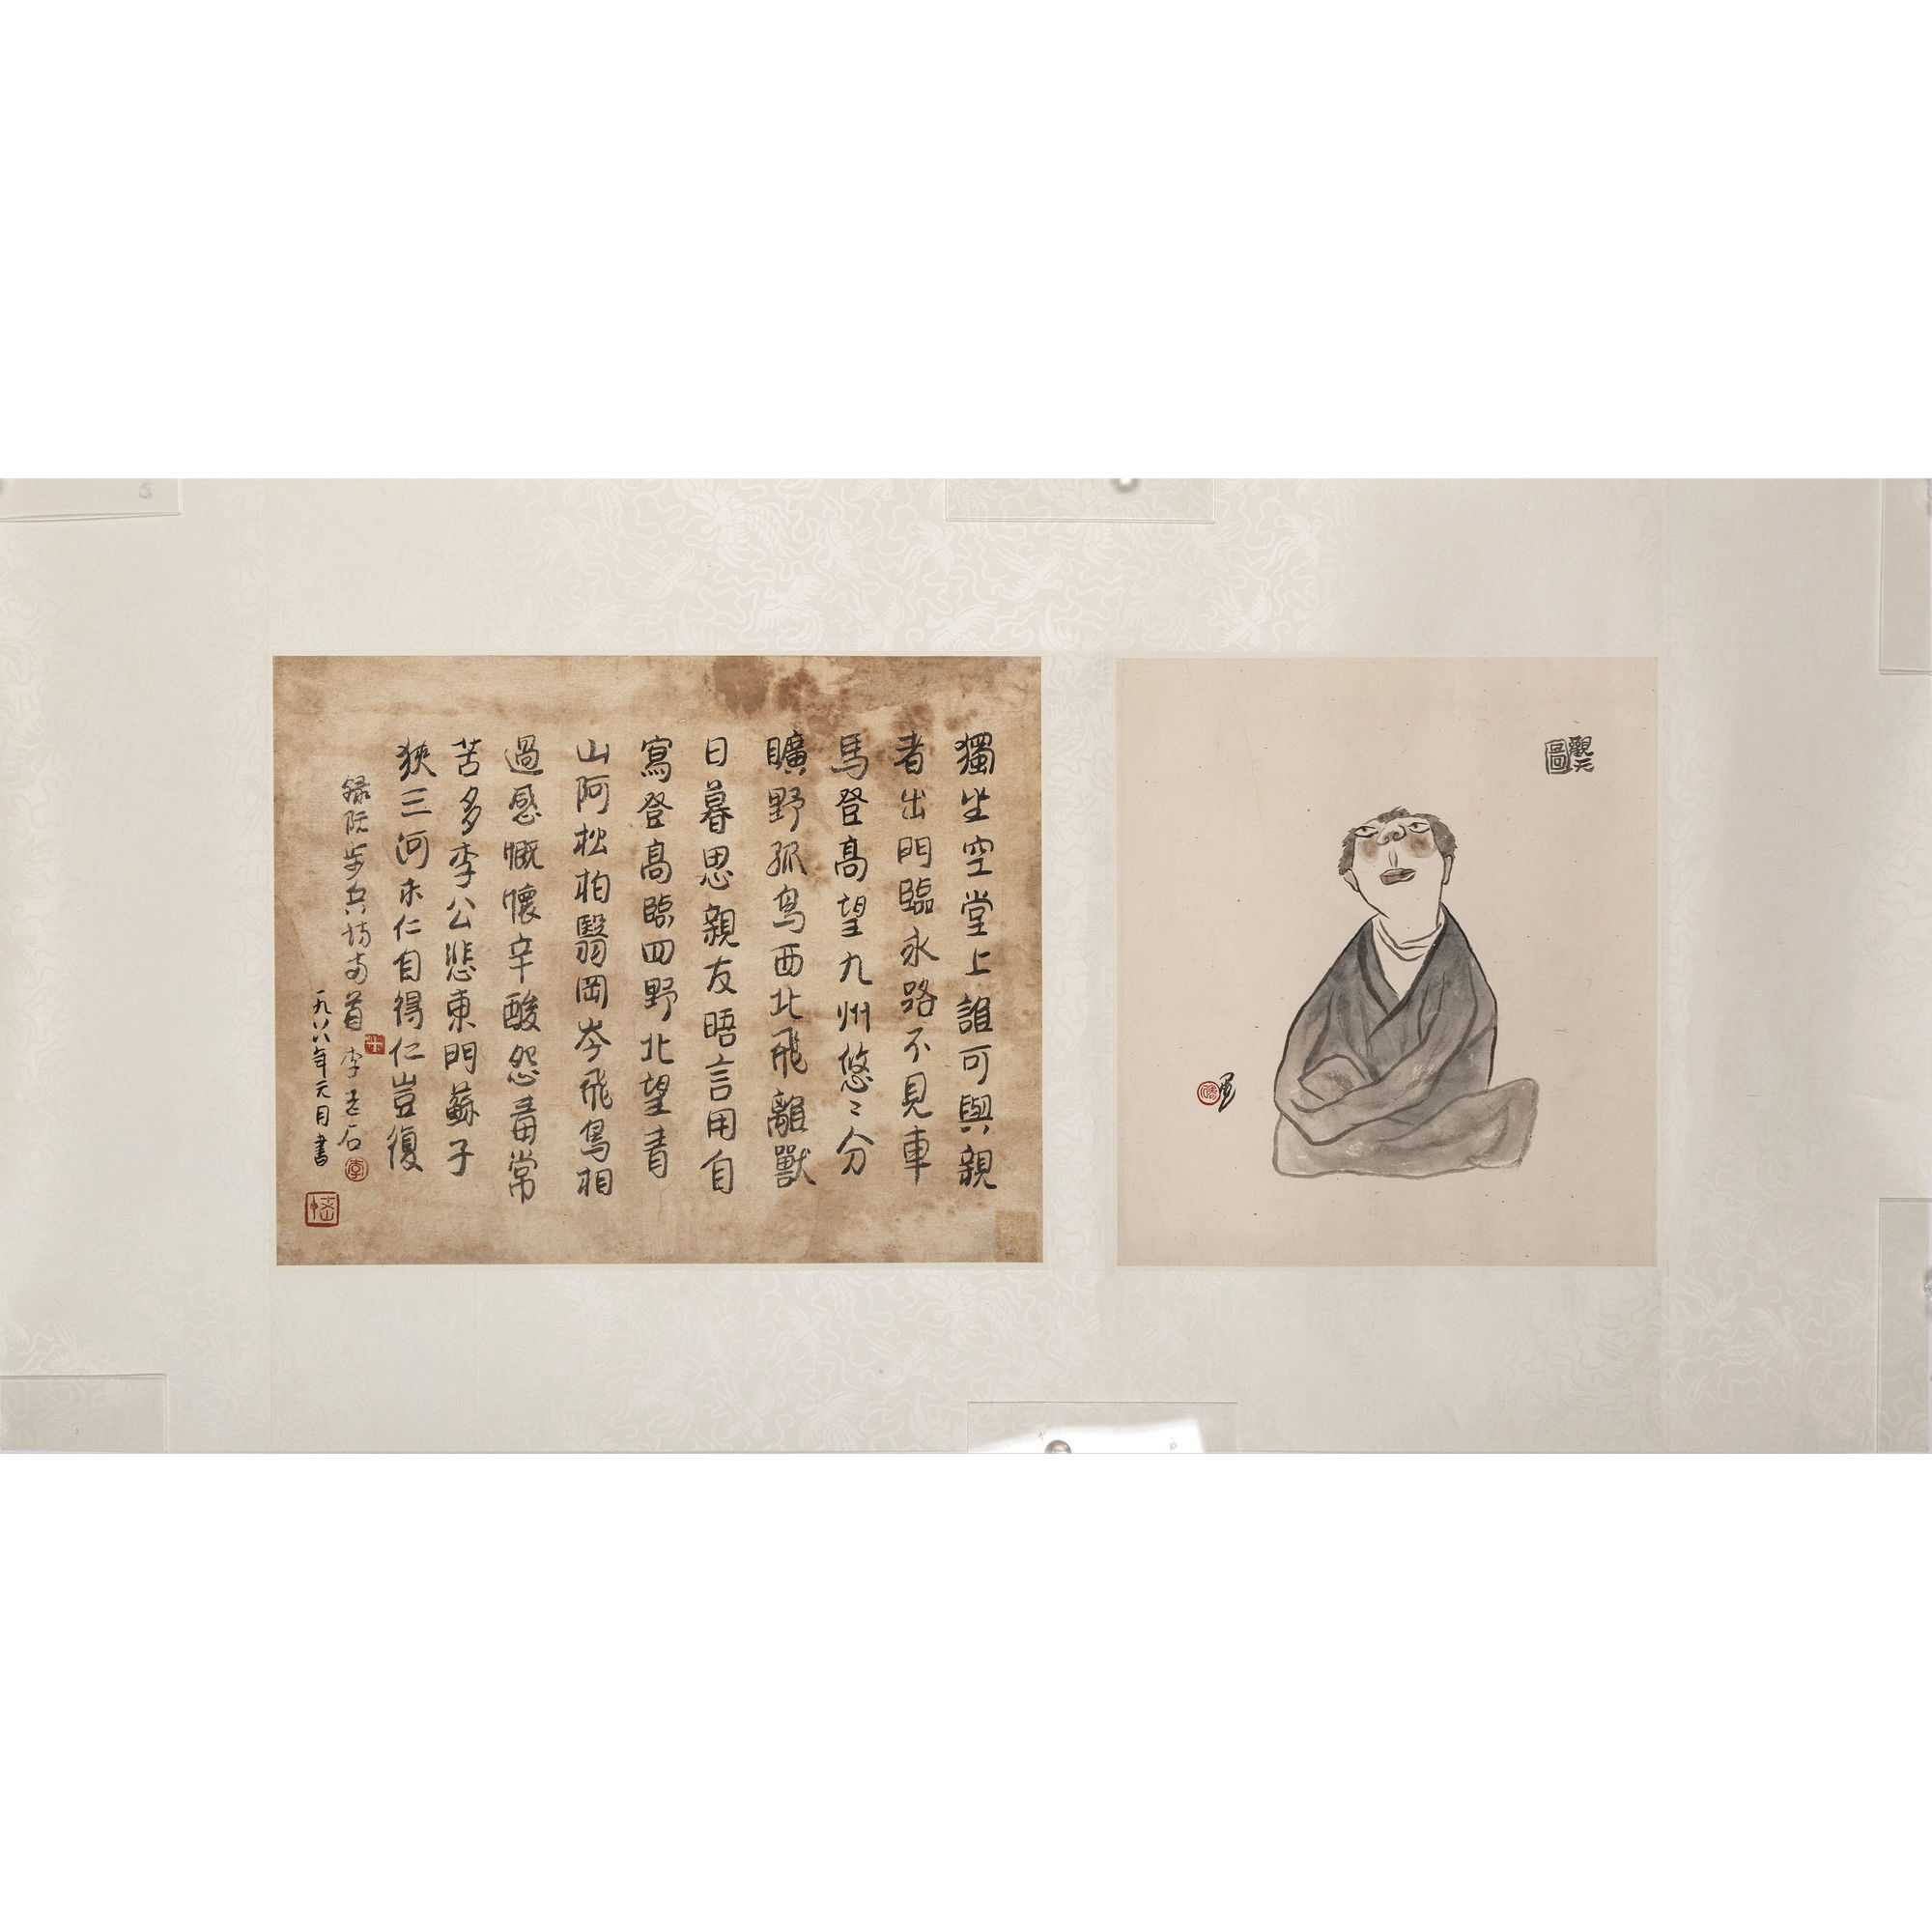 觀天
圖
獨坐空堂上誰可與親
者出門臨永路不見車
馬登高望九州悠〻分
曠野孤鳥西北飛離獸
日暮思親友晤言用自
寫登高臨四野北望青
山阿松柏翳岡岑飛鳥相
過感慨懷辛酸怨毒常
苦多李公悲東門蘇子
狹三河求仁自得仁豈復
録阮步兵詩两首 李老石
一九八八年元月書